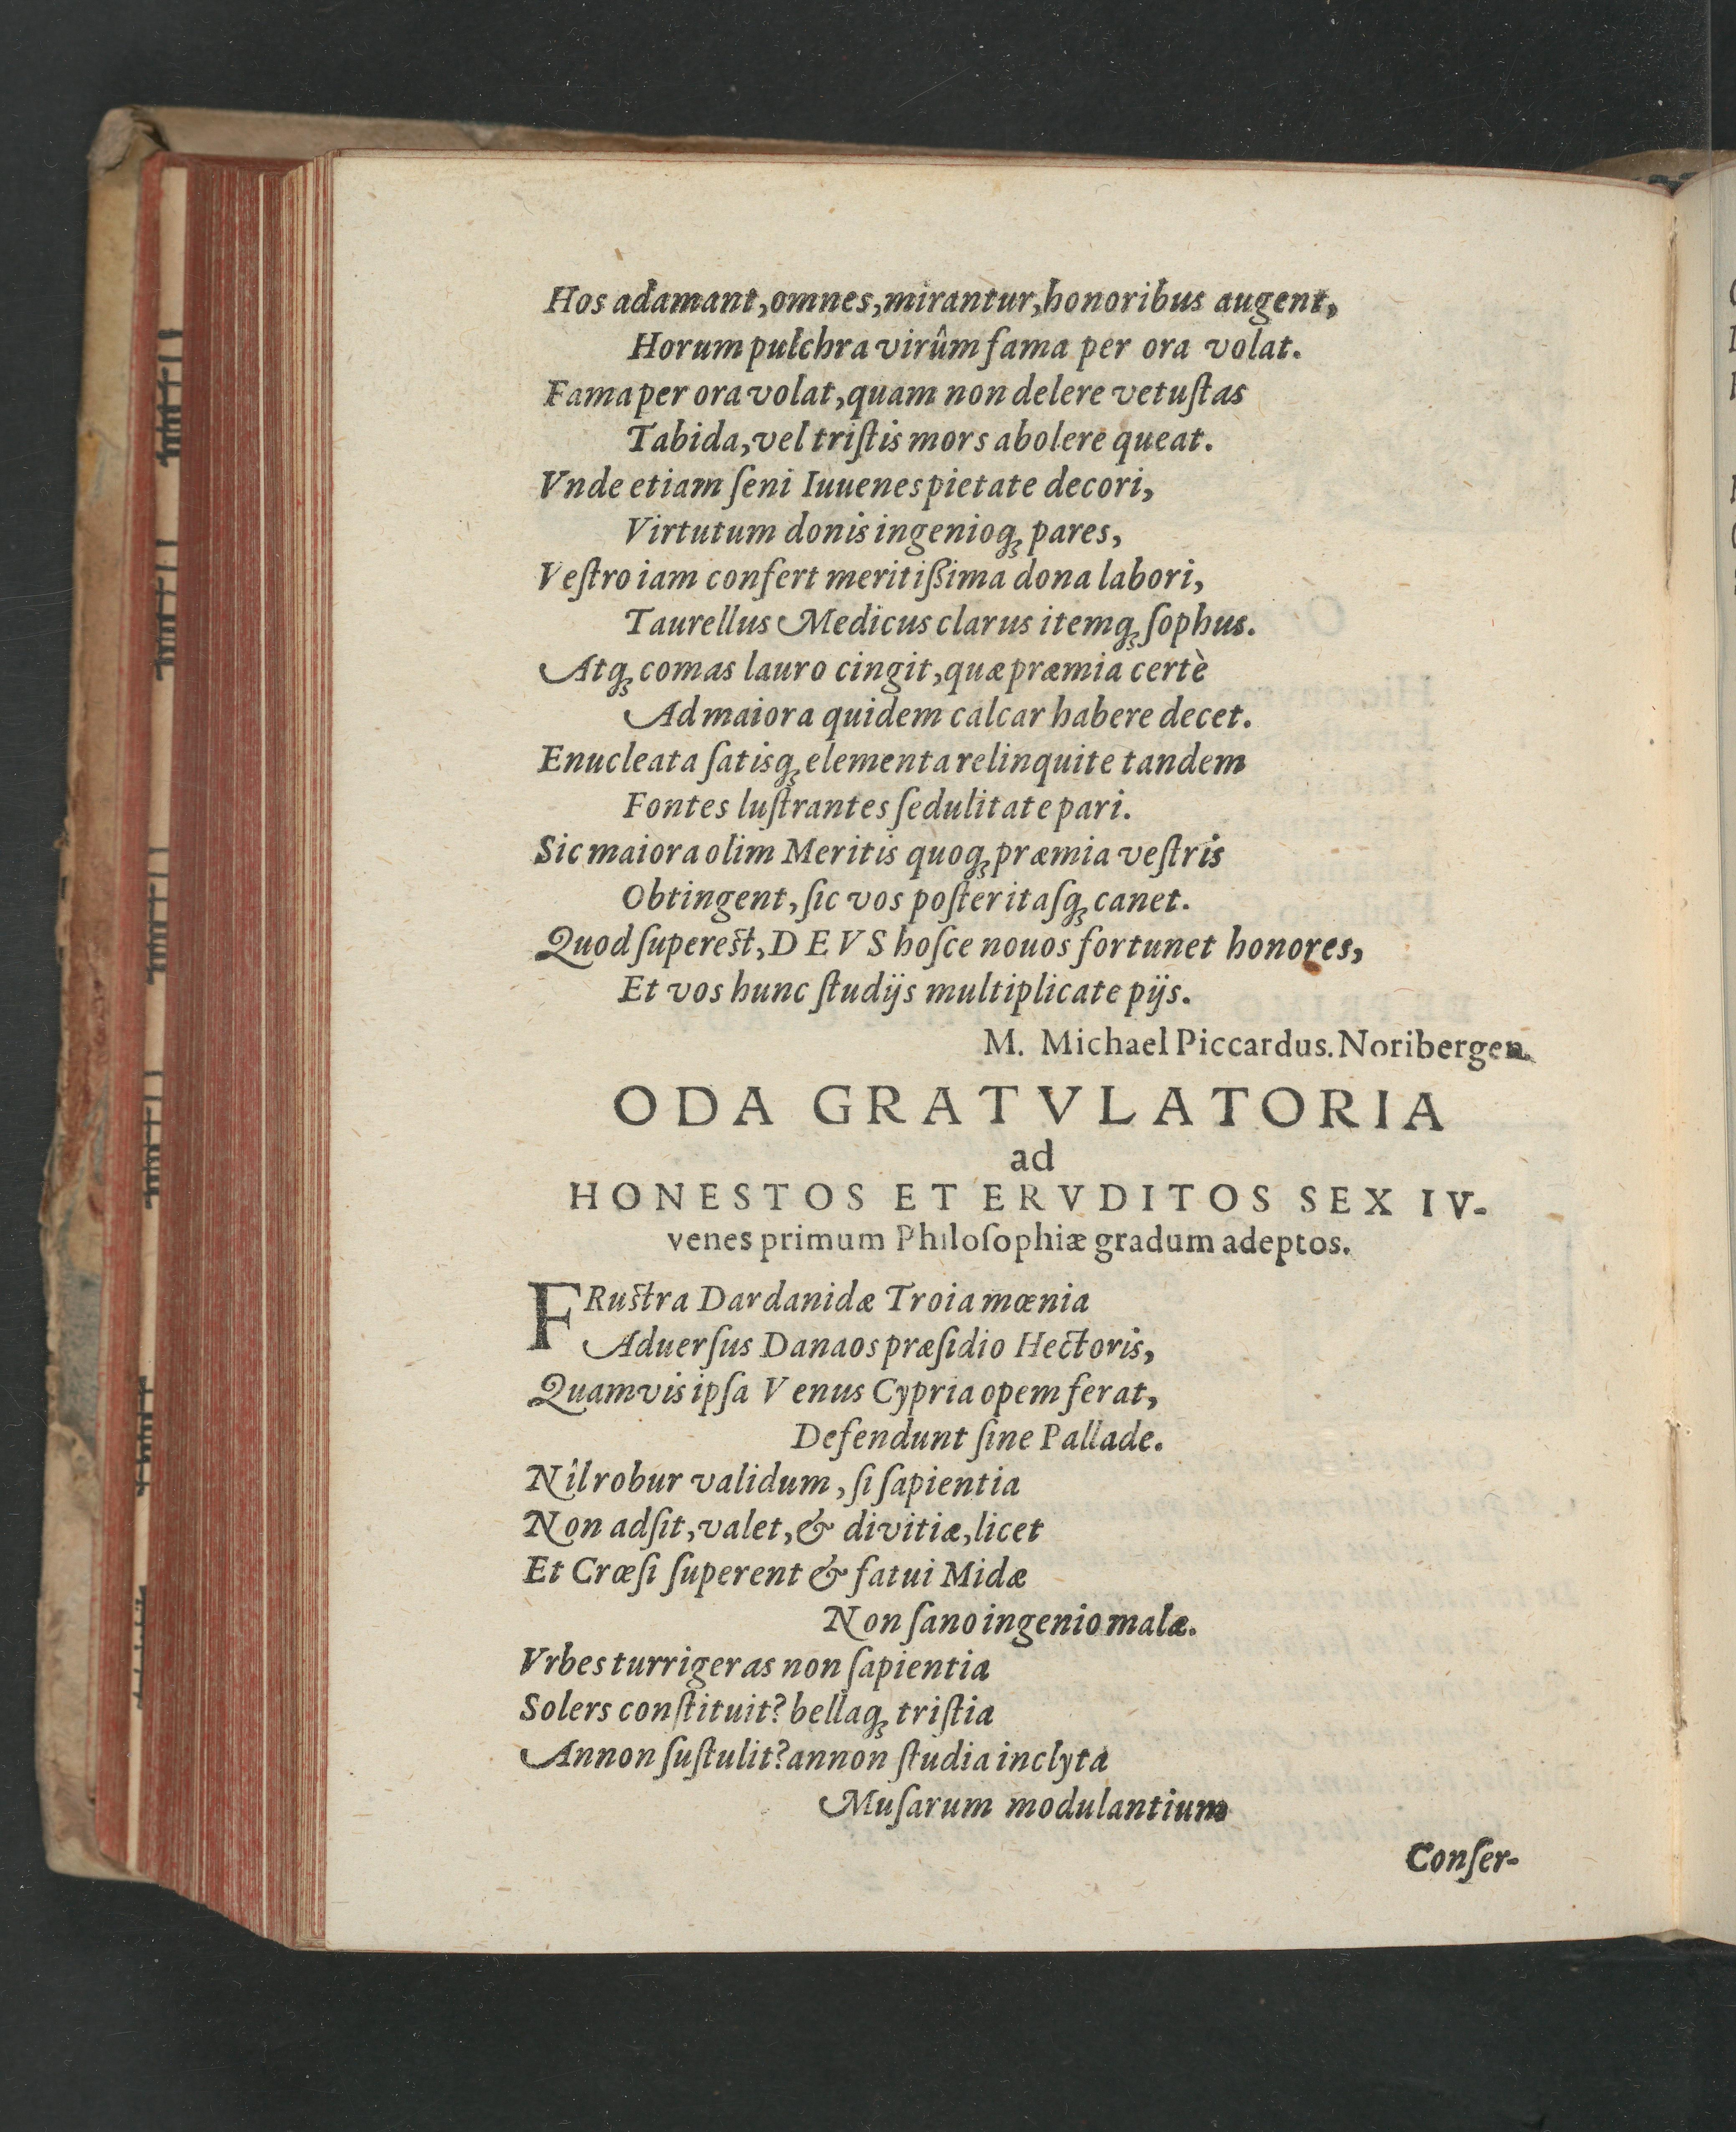 Hos adamant, omnes, mirantur, honoribus augent,
Horum pulchra virûm fama per ora volat.
Fama per ora volat, quam non delere vetuſtas
Tabida, vel triſtis mors abolere queat.
Vnde etiam ſeni Iuuenes pietate decori,
Virtutum donis ingenioq́ꝫ pares,
Veſtro iam confert meritißima dona labori,
Taurellus Medicus clarus itemqꝫ ſophus.
Atqꝫ comas lauro cingit, quæ præmia certè
Ad maiora quidem calcar habere decet.
Enucleata ſatisqꝫ elementa relinquite tandem
Fontes luſtrantes ſedulitate pari.
Sic maiora olim Meritis quoqꝫ præmia veſtris
Obtingent, ſic vos poſteritaſqꝫ canet.
Quod ſupereſt, DEVS hoſce nouos fortunet honores,
Et vos hunc ſtudijs multiplicate pijs.
M. Michael Piccardus. Noribergen.
ODA GRATVLATORIA
ad
HONESTOS ET ERVDITOS SEX IV-
venes primum Philoſophiæ gradum adeptos.
FRuſtra Dardanidæ Troia mœnia
Aduerſus Danaos præſidio Hectoris,
Quamvis ipſa Venus Cypria opem ferat,
Defendunt ſine Pallade.
Nil robur validum, ſi ſapientia
Non adſit, valet, & divitiæ, licet
Et Crœſi ſuperent & fatui Midæ
Non ſano ingenio malæ.
Vrbes turrigeras non ſapientia
Solers conſtituit? bellaqꝫ triſtia
Annon ſuſtulit? annon ſtudia inclyta
Muſarum modulantium
Conſer-